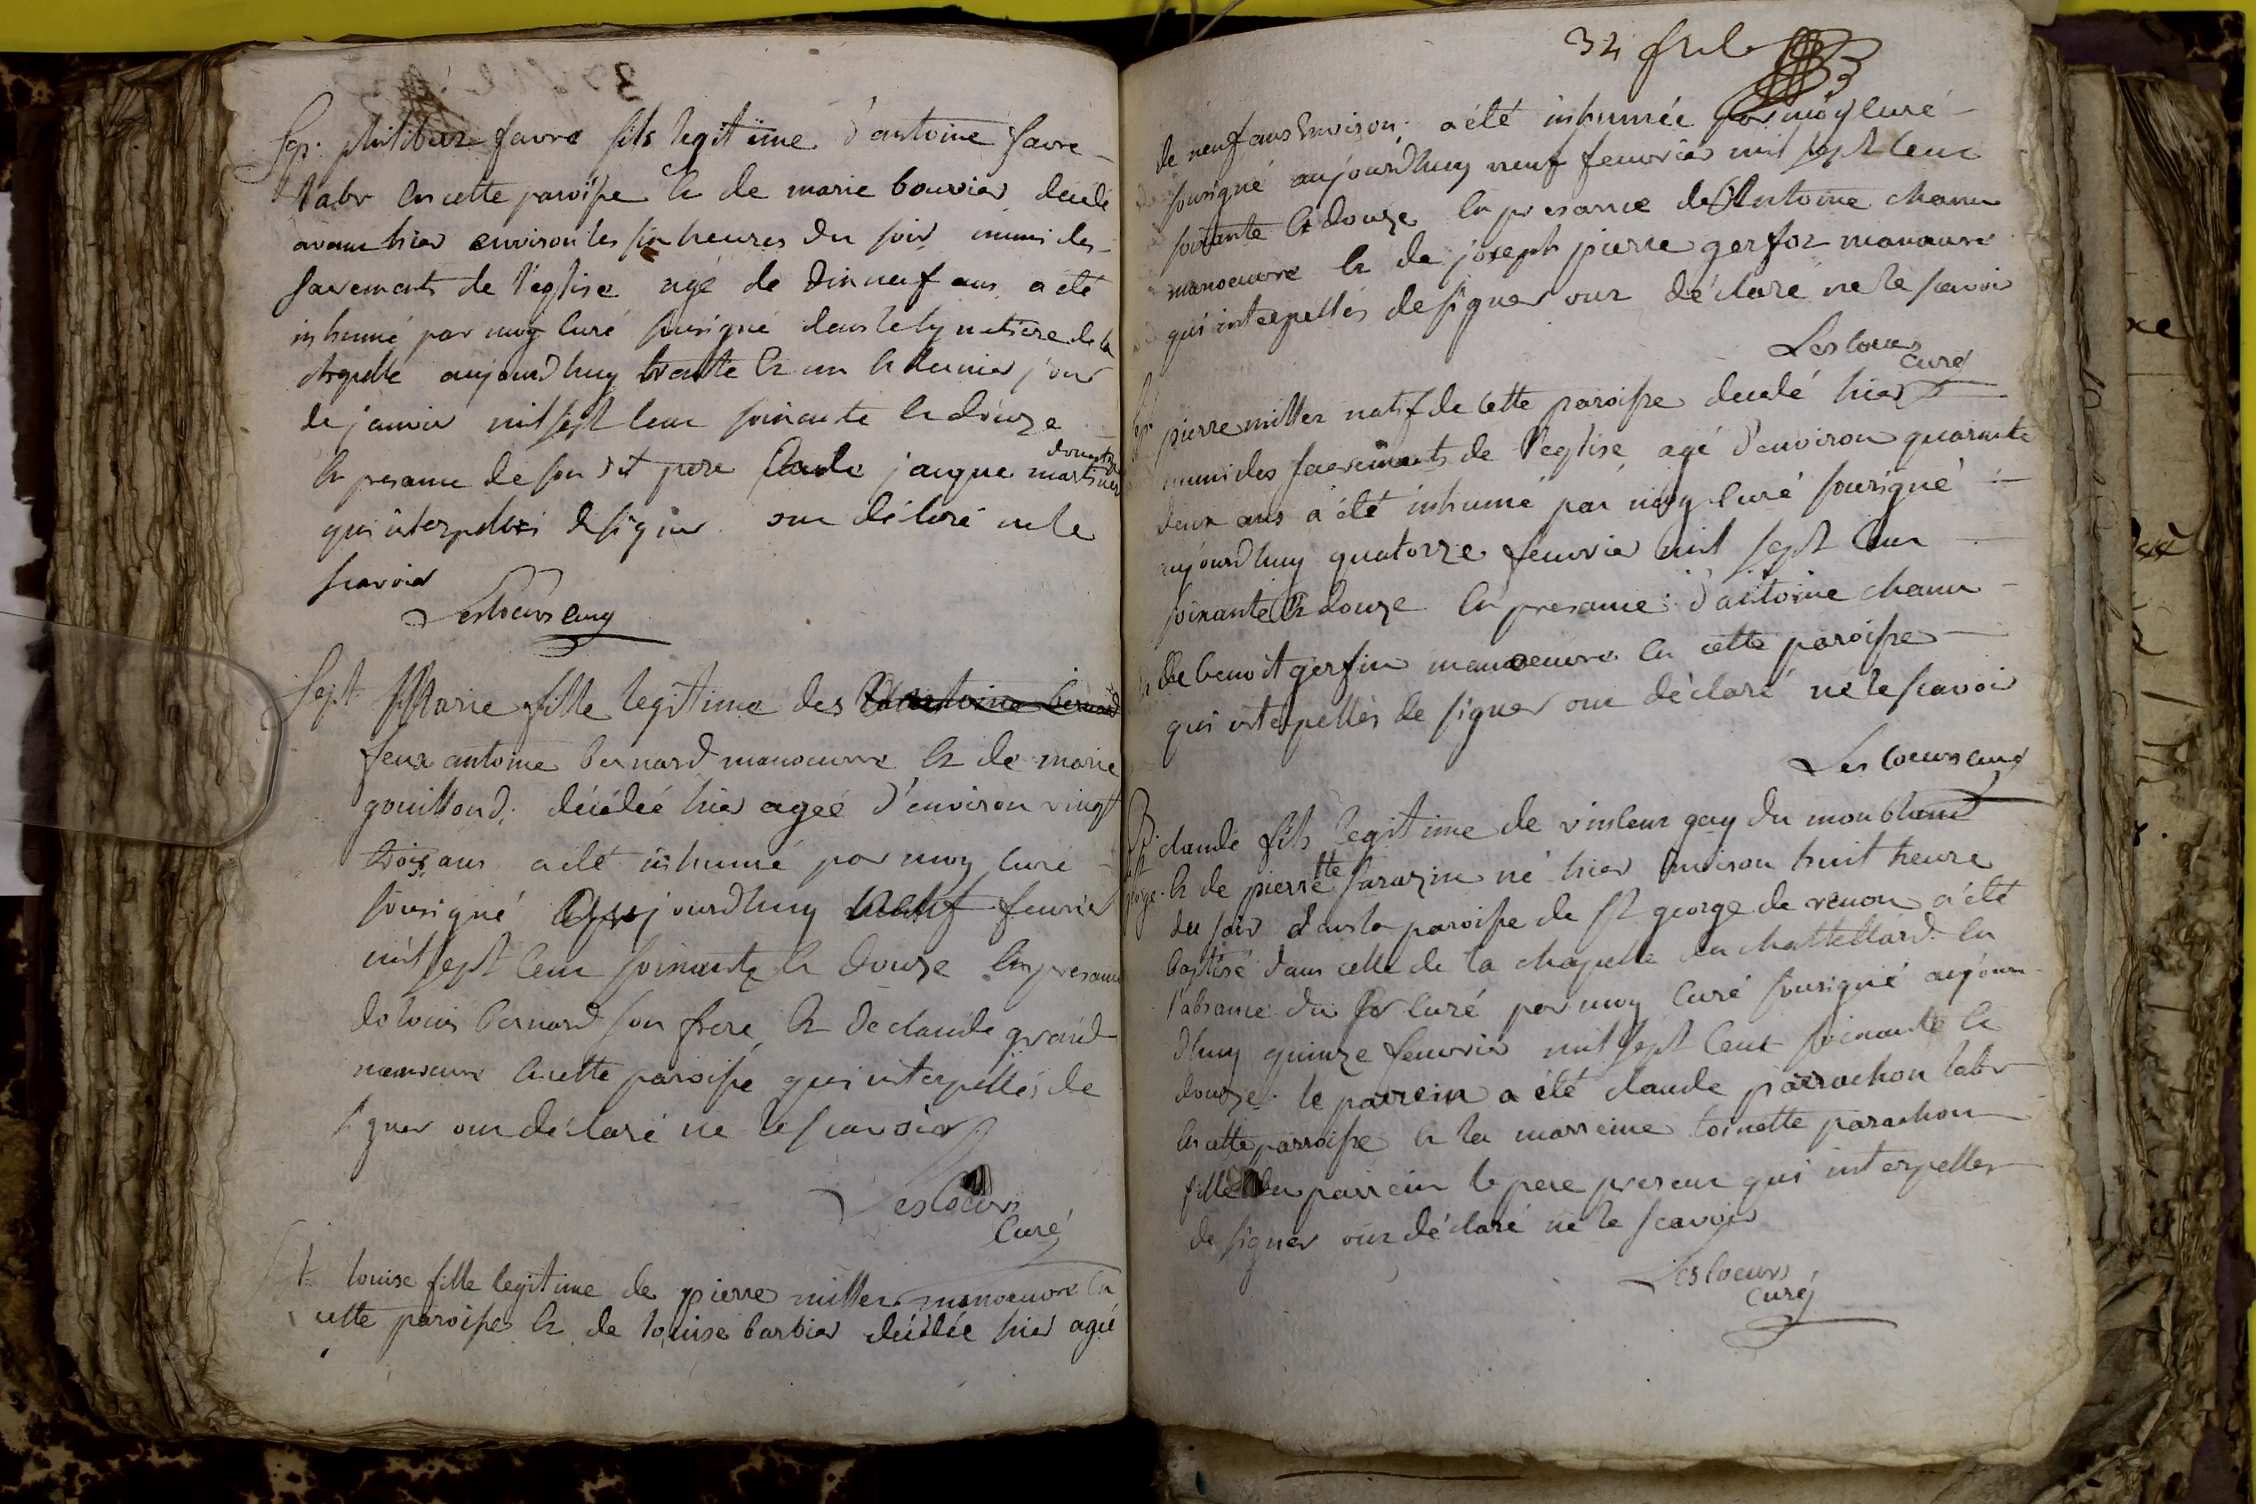 Sep. philiber favre fils legitime d'antoine favre
labr en cette paroisse et de marie bouvier decedé
avant hier environ les six heures du soir muni des
sacrements de l'eglise agé de dix neuf ans a été
inhumé par moy curé sousigné dans le cymetiere de la
chapelle aujourdhuy trente et un et dernier jour
de janvier mil sept cent soixante et douze
en presance de son dit pere jacque martinet
domestique
qui interpellés de signer ont déclaré ne le
scavoir
Lescoeurs curé
Sept. Marie fille legitime des antoine bernard
feux antoine bernard manoeuvre et de marie
gouillond, décédée hier ageé d'environ vingt
trois ans a été inhumé par moy curé
sousigné aujourdhuy neuf fevrier
mil sept cent soixante et douze en presance
de louis bernard son frere et de claude grand
manoeuvre en cette paroisse qui interpellés de
signer ont déclaré ne le scavoir
Lescoeurs
Curé
louise fille legitime de pierre millet manoeuvre en
cette paroisse et de louise barbier décédée hier agée
34
de neuf ans environ a été inhumée par moy curé
sousigné aujourdhuy neuf fevrier mil sept cent
soixante et douze en presance de Antoine chanu
manoeuvre et de joseph pierre gerfoz manoeuvre
qui interpellés de signer ont déclaré ne le scavoir
Lescoeurs
curé
pierre millet natif de cette paroisse decedé hier
muni des sacrements de l'eglise agé d'environ quarante
deux ans a été inhumé par moy curé sousigné
aujourdhuy quatorze fevrier mil sept cent
soixante et douze en presance d'antoine chanu
de benoit gerfin manoeuvre en cette paroisse
qui interpellés de signer ont déclaré ne le scavoir
Lescoeurs curé
claude fils legitime de vincent gay du monblanc
et de pierrette sarazin né hier environ huit heure
du soir dans la paroisse de st george de renon a été
baptisé dans celle de la chapelle du chattellard en
l'absance du sr curé par moy curé sousigné aujour
dhuy quinze fevrier mil sept cent soixante et
douze. le parrein a été claude parrachon labr
en cette parroisse et la marreine toinette parachon
fille du parrein le pere present qui interpellés
de signer ont déclaré ne le scavoir
Lescoeurs
curé